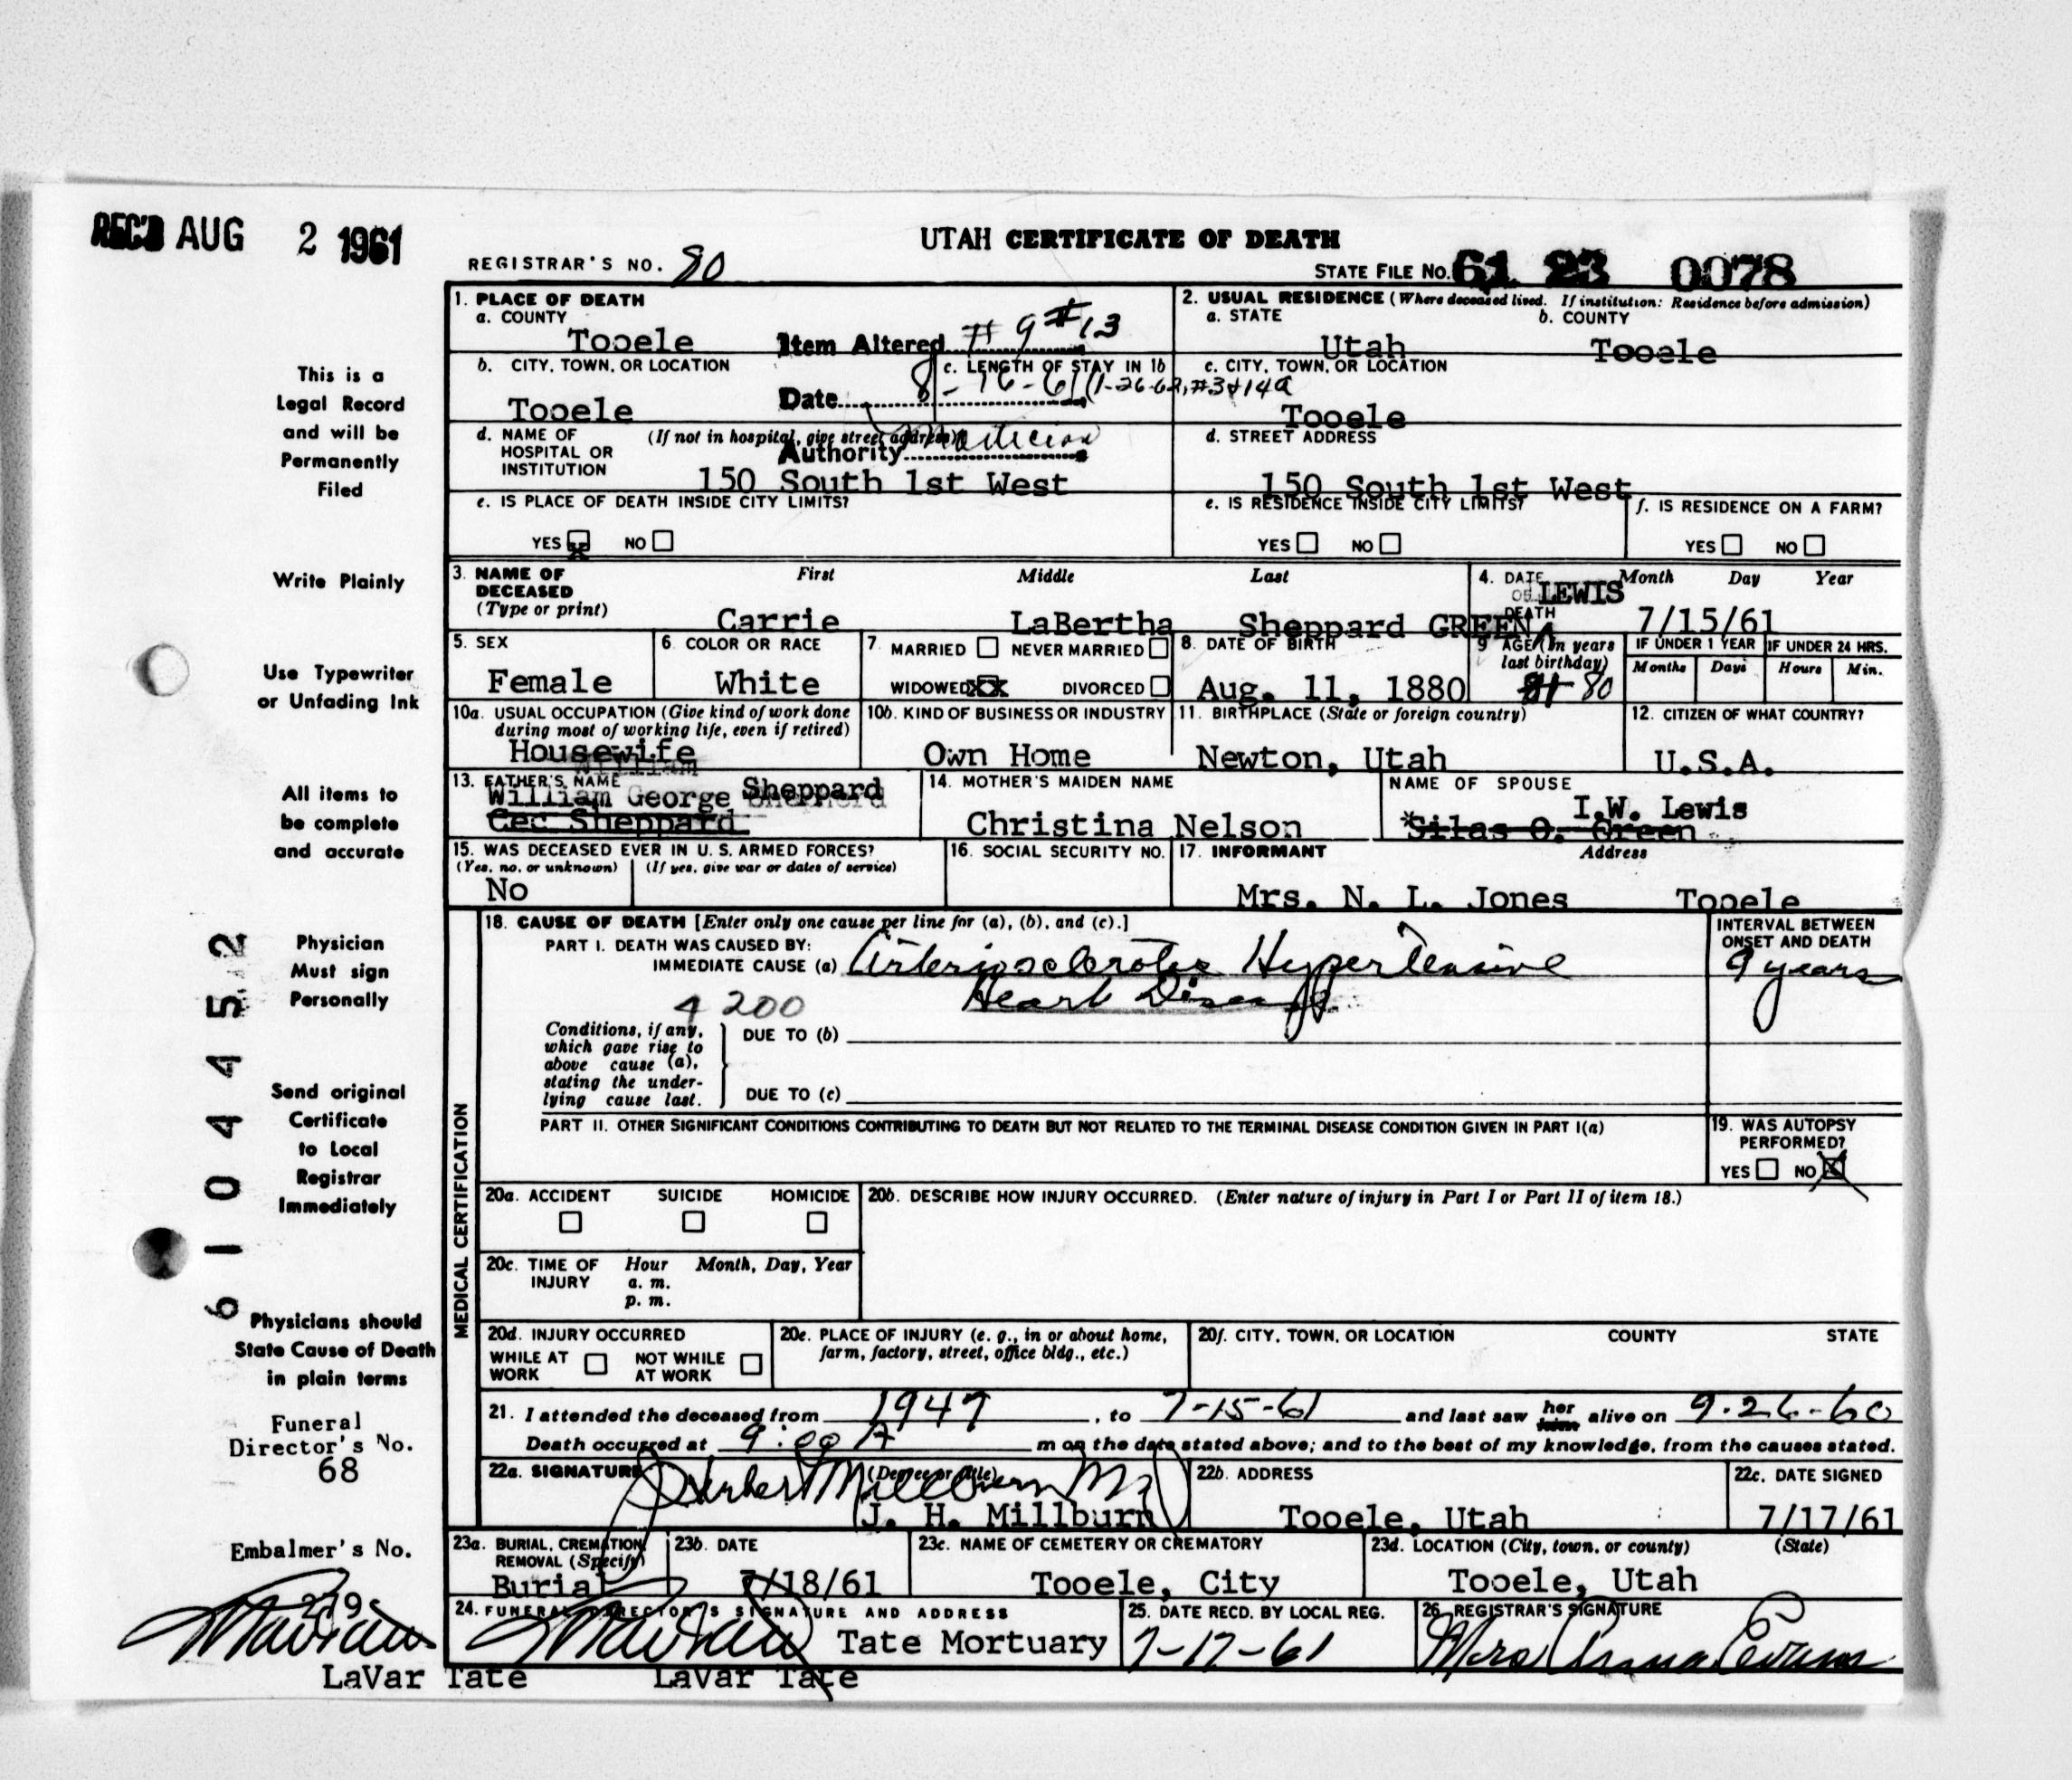 REC'D AUG 2 1961
UTAH CERTIFICATE OF DEATH
REGISTRAR'S NO. 80
STATE FILE NO. 61 23 0078
1. PLACE OF DEATH
a. COUNTY
Tooele
Item Altered #9 #13
2. USUAL RESIDENCE (Where deceased lived. If institution: Residence before admission)
a. STATE
Utah
b. COUNTY
Tooele
b. CITY, TOWN, OR LOCATION
Tooele
c. LENGTH OF STAY IN 1b
Date 8-16-61 (1-26-62, #3&14a
c. CITY, TOWN, OR LOCATION
Tooele
d. NAME OF HOSPITAL OR INSTITUTION
(If not in hospital, give street address)
Authority Mortician
150 South 1st West
d. STREET ADDRESS
150 South 1st West
e. IS PLACE OF DEATH INSIDE CITY LIMITS?
YES X NO
e. IS RESIDENCE INSIDE CITY LIMITS?
YES NO
f. IS RESIDENCE ON A FARM?
YES NO
3. NAME OF DECEASED
(Type or print)
First Middle Last
Carrie LaBertha Sheppard GREEN LEWIS
4. DATE OF DEATH
Month Day Year
7/15/61
5. SEX
Female
6 COLOR OR RACE
White
7 MARRIED NEVER MARRIED
WIDOWED XX DIVORCED
8. DATE OF BIRTH
Aug. 11, 1880
9 AGE (In years last birthday)
81 80
IF UNDER 1 YEAR
Months Days
IF UNDER 24 HRS.
Hours Min.
10a. USUAL OCCUPATION (Give kind of work done during most of working life, even if retired)
Housewife
10b. KIND OF BUSINESS OR INDUSTRY
Own Home
11. BIRTHPLACE (State or foreign country)
Newton, Utah
12. CITIZEN OF WHAT COUNTRY?
U.S.A.
13. FATHER'S NAME
William George Sheppard
Cec Sheppard
14. MOTHER'S MAIDEN NAME
Christina Nelson
NAME OF SPOUSE
I.W. Lewis
*Silas O. Green
15. WAS DECEASED EVER IN U. S. ARMED FORCES?
(Yes, no, or unknown) (If yes, give war or dates of service)
No
16. SOCIAL SECURITY NO.
17. INFORMANT Address
Mrs. N. L. Jones Tooele
MEDICAL CERTIFICATION
18. CAUSE OF DEATH [Enter only one cause per line for (a), (b), and (c).]
PART I. DEATH WAS CAUSED BY:
IMMEDIATE CAUSE (a) Arteriosclerotic Hypertensive
Heart Disease
4 200
INTERVAL BETWEEN ONSET AND DEATH
9 years
Conditions, if any, which gave rise to above cause (a), stating the underlying cause last.
DUE TO (b)
DUE TO (c)
PART II. OTHER SIGNIFICANT CONDITIONS CONTRIBUTING TO DEATH BUT NOT RELATED TO THE TERMINAL DISEASE CONDITION GIVEN IN PART I(a)
19. WAS AUTOPSY PERFORMED?
YES NO X
20a. ACCIDENT SUICIDE HOMICIDE
20b. DESCRIBE HOW INJURY OCCURRED. (Enter nature of injury in Part I or Part II of item 18.)
20c. TIME OF INJURY
Hour Month, Day, Year
a. m.
p. m.
20d. INJURY OCCURRED
WHILE AT WORK NOT WHILE AT WORK
20e. PLACE OF INJURY (e. g., in or about home, farm, factory, street, office bldg., etc.)
20f. CITY, TOWN, OR LOCATION COUNTY STATE
21. I attended the deceased from 1947, to 7-15-61 and last saw her him alive on 9-26-60
Death occurred at 9:00 A m on the date stated above; and to the best of my knowledge, from the causes stated.
22a. SIGNATURE (Degree or title)
J Herbert Millburn MD
J. H. Millburn
22b. ADDRESS
Tooele, Utah
22c. DATE SIGNED
7/17/61
23a. BURIAL, CREMATION, REMOVAL (Specify)
Burial
23b. DATE
7/18/61
23c. NAME OF CEMETERY OR CREMATORY
Tooele, City
23d. LOCATION (City, town, or county) (State)
Tooele, Utah
24. FUNERAL DIRECTOR'S SIGNATURE AND ADDRESS
Tate Mortuary
LaVar Tate
25. DATE RECD. BY LOCAL REG.
7-17-61
26. REGISTRAR'S SIGNATURE
Mrs Anna Evans
This is a
Legal Record
and will be
Permanently
Filed
Write Plainly
Use Typewriter
or Unfading Ink
All items to
be complete
and accurate
Physician
Must sign
Personally
Send original
Certificate
to Local
Registrar
Immediately
Physicians should
State Cause of Death
in plain terms
Funeral
Director's No.
68
Embalmer's No.
219
LaVar Tate
61 04452